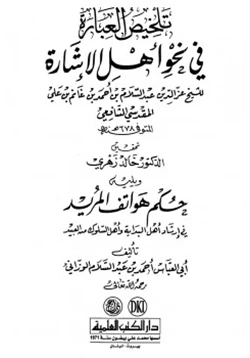 تلخيص العبارة
في نحو أهل الإشارة
للشيخ عز الدين عبد السلام بن أحمد بن غانم بن علي
المقدسي الشافعي
المتوفى ٦٧٨ هـ
تحقيق
الدكتور خالد زهري
ويليه
حكم هواتف المريد
في إرشاد أهل البداية وأهل السلوك من العبيد
تأليف
أبي العباس أحمد بن عبد السلام الوزاني
رحمه الله تعالى
DKI
دار الكتب العلمية
أسسها محمد علي بيضون سنة 1971
بيروت - لبنان